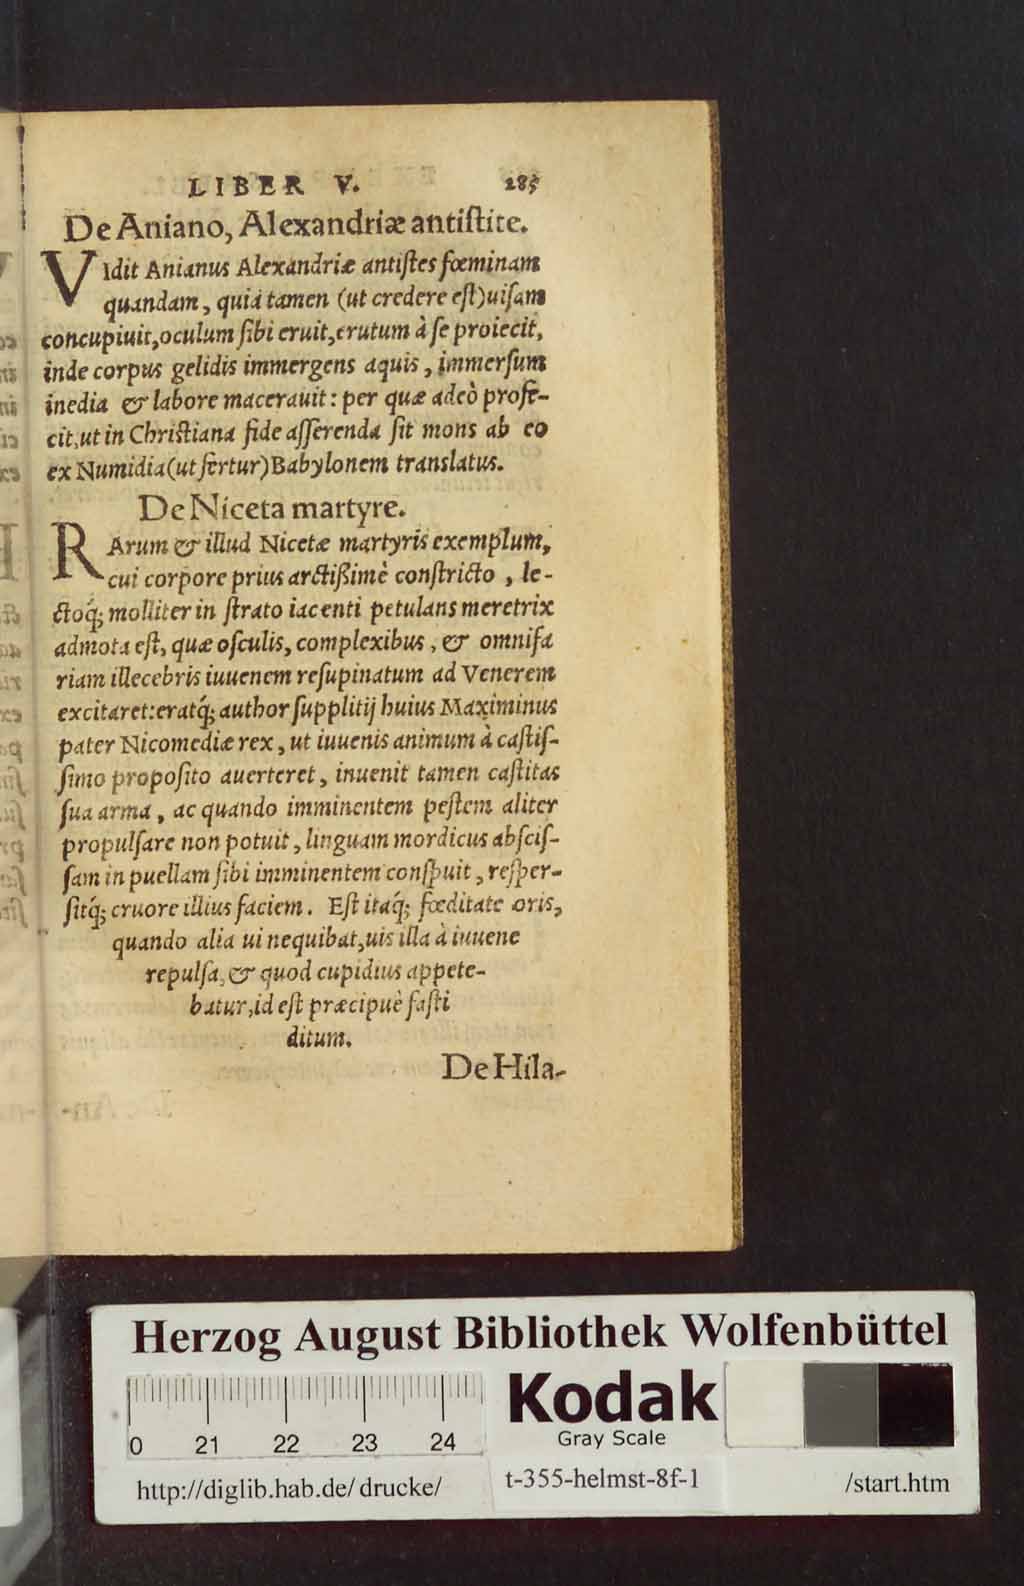 LIBER V. 285
De Aniano, Alexandriæ antiſtite.
VIdit Anianus Alexandriæ antiſtes fœminam
quandam, quiá tamen (ut credere eſt) uiſam
concupiuit, oculum ſibi eruit, erutum à ſe proiecit,
inde corpus gelidis immergens aquis, immerſum
inedia & labore macerauit: per quæ adeò profe-
cit, ut in Chriſtiana fide aſſerenda ſit mons ab eo
ex Numidia (ut fertur) Babylonem translatus.
De Niceta martyre.
RArum & illud Nicetæ martyris exemplum,
cui corpore prius arctißimè conſtricto, le-
ctoq́; molliter in ſtrato iacenti petulans meretrix
admota eſt, quæ oſculis, complexibus, & omnifa
riam illecebris iuuenem reſupinatum ad Venerem
excitaret: eratq́; author ſupplitij huius Maximinus
pater Nicomediæ rex, ut iuuenis animum à caſtiſ-
ſimo propoſito auerteret, inuenit tamen caſtitas
ſua arma, ac quando imminentem peſtem aliter
propulſare non potuit, linguam mordicus abſciſ-
ſam in puellam ſibi imminentem conſpuit, reſper-
ſitq́; cruore illius faciem. Eſt itaq́; fœditate oris,
quando alia ui nequibat, uis illa à iuuene
repulſa, & quod cupidius appete-
batur, id eſt præcipuè faſti
ditum.
De Hila-
Herzog August Bibliothek Wolfenbüttel
Kodak
Gray Scale
0 21 22 23 24
http://diglib.hab.de/drucke/ t-355-helmst-8f-1 /start.htm